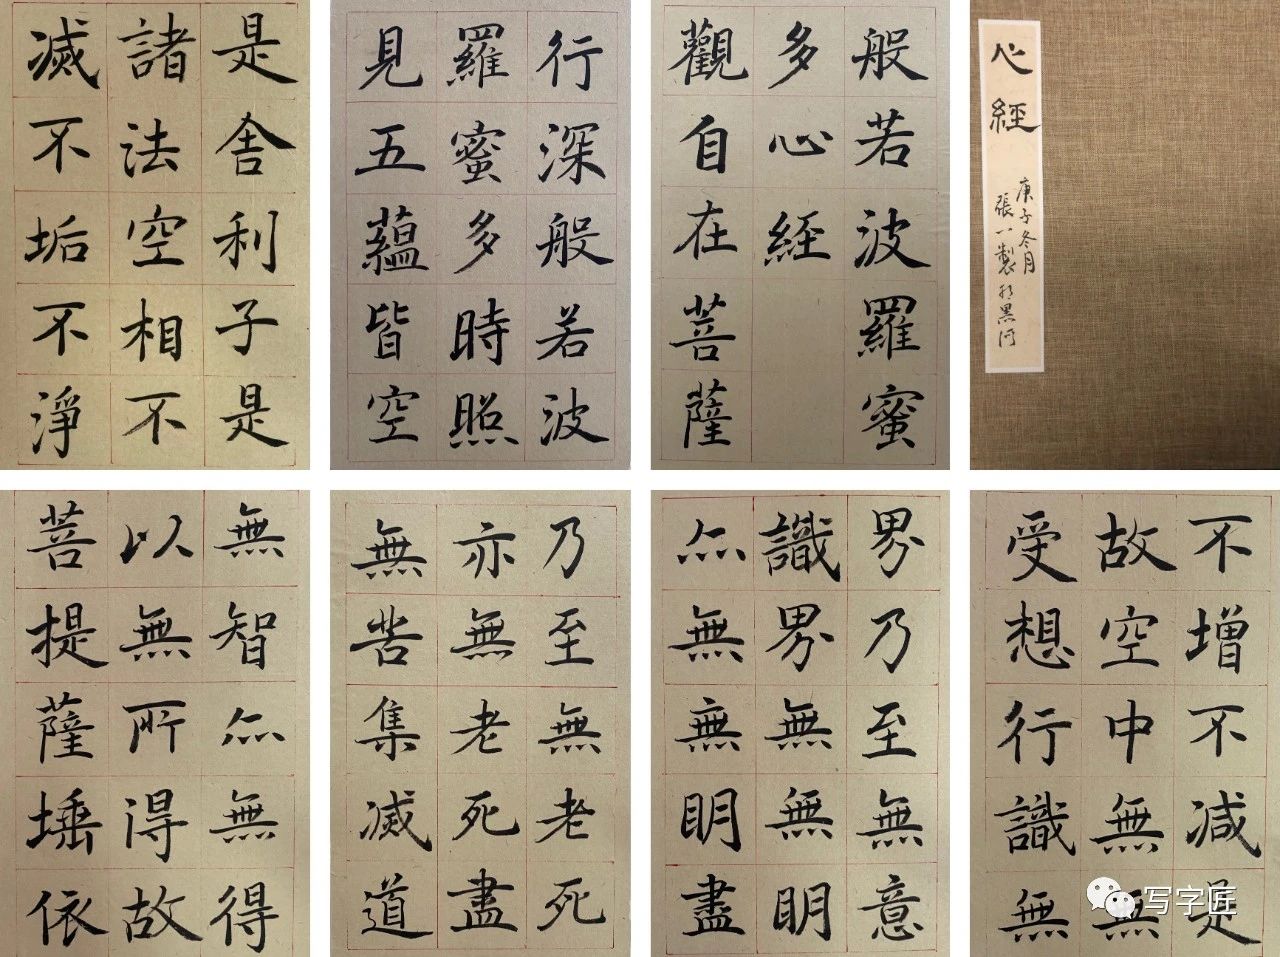 心經
庚子冬月
張一製於黑河
般若波羅蜜
多心經
觀自在菩薩
行深般若波
羅蜜多時照
見五蘊皆空
是舍利子是
諸法空相不
滅不垢不淨
不增不減是
故空中無無
受想行識無
界乃至無意
識界無無明
亦無無明盡
乃至無老死
亦無老死盡
無苦集滅道
無智亦無得
以無所得故
菩提薩埵依
写字匠